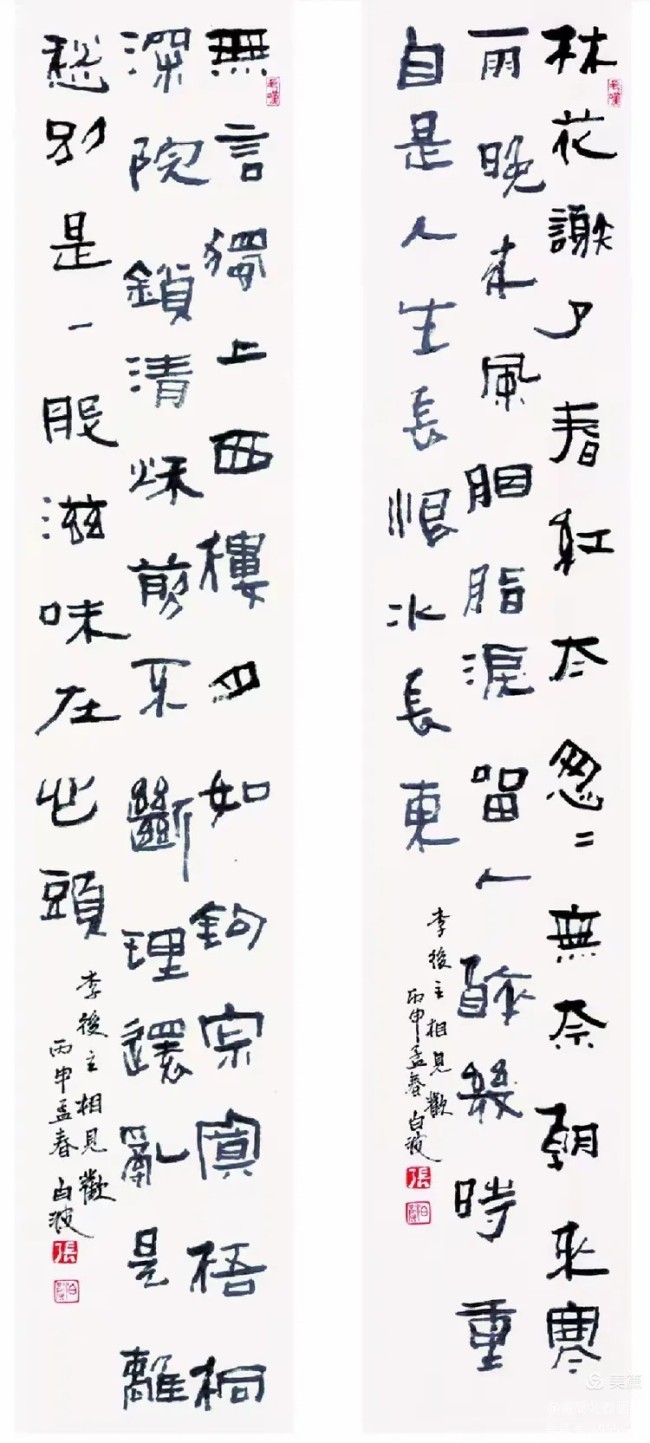 林花謝了春紅太怱〻無奈朝来寒
雨晚来風胭脂淚留人醉幾時重
自是人生長恨水長東
李後主相見歡
丙申孟春白波
張
無言獨上西樓月如鉤宗寞梧桐
深院鎖清秋剪不斷理還亂是離
愁别是一股滋味在心頭
李後主相見歡
丙申孟春白波
張
美篇